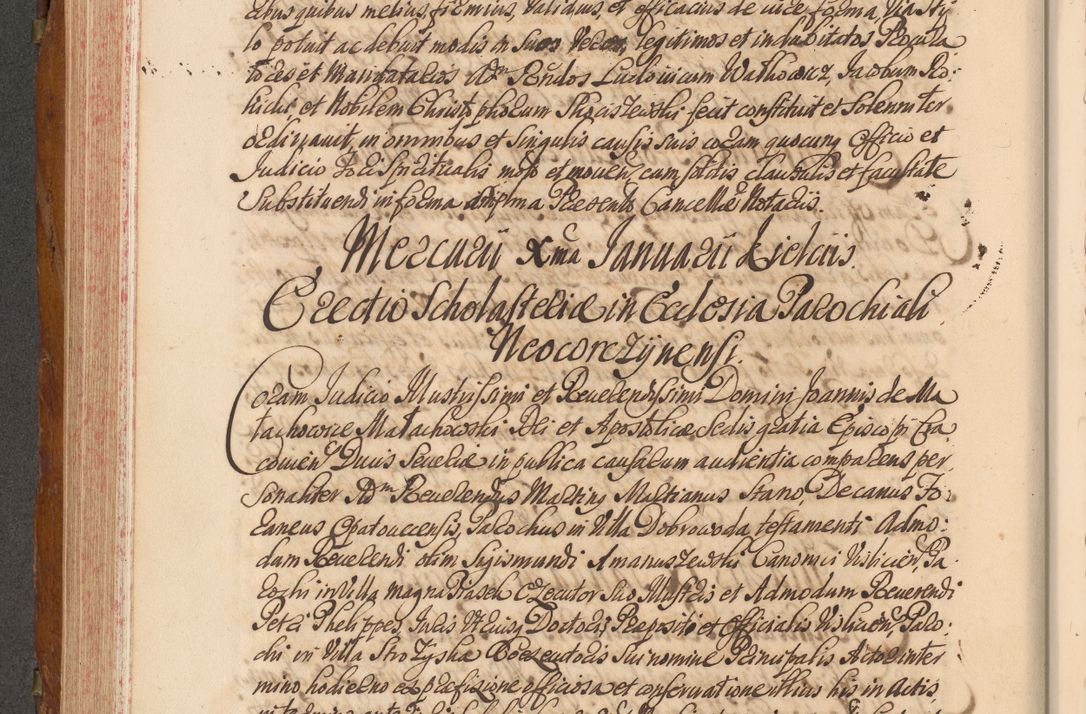 ebus quibus melius firmius, validius, et efficacius de iure, forma, via sty
lo potuit ac debuit modis in suos veros, legitimos et indubitatos Procura
tores et Mandatarios Adm Rndos Ludovicum Walkowicz, Jacobum Ro
hidic, et Nobilem Christophorum fecit constituit et solenniter
ordinavit, in omnibus et singulis causis suis coram quocunq Officio et
Judicio fori spiritualis motis et moven, cum solitis clausulis et facultate
substituendi in forma Praesente Cancellae Notariis.
Mercurii Xma Januarii Kielciis.
Erectio Scholasteriae in Ecclesia Parochiali
Neocorczynensi.
Coram Judicio Illustrissimi et Reverendissimi Domini Joannis de Ma
łachowice Małachowski Dei et Apostolicae Sedis gratia Episcopi Cra
covien Ducis Severiae in publica causarum audientia comparens per
sonaliter Adm Reverendus Martinus Martianus Stano, Decanus Fo
raneus Opatovecensis, Parochus in Villa Dobrowoda, testamenti Admo
dam Reverendi olim Sigismundi Amanuszewski Canonici Vislicien, Pa
rochi in Villa magna Piasek Executor suo Illustris et Admodum Reverendi
Petri Phelippes, Juris Utriusq Doctoris Praepositi et Officialis Vislicien, Paro
chi in Villa Strożyska Coexecutoris sui nomine Principalis Actor in ter
mino hodierno ex praefixione officiosa et conservatione illius his in Actis